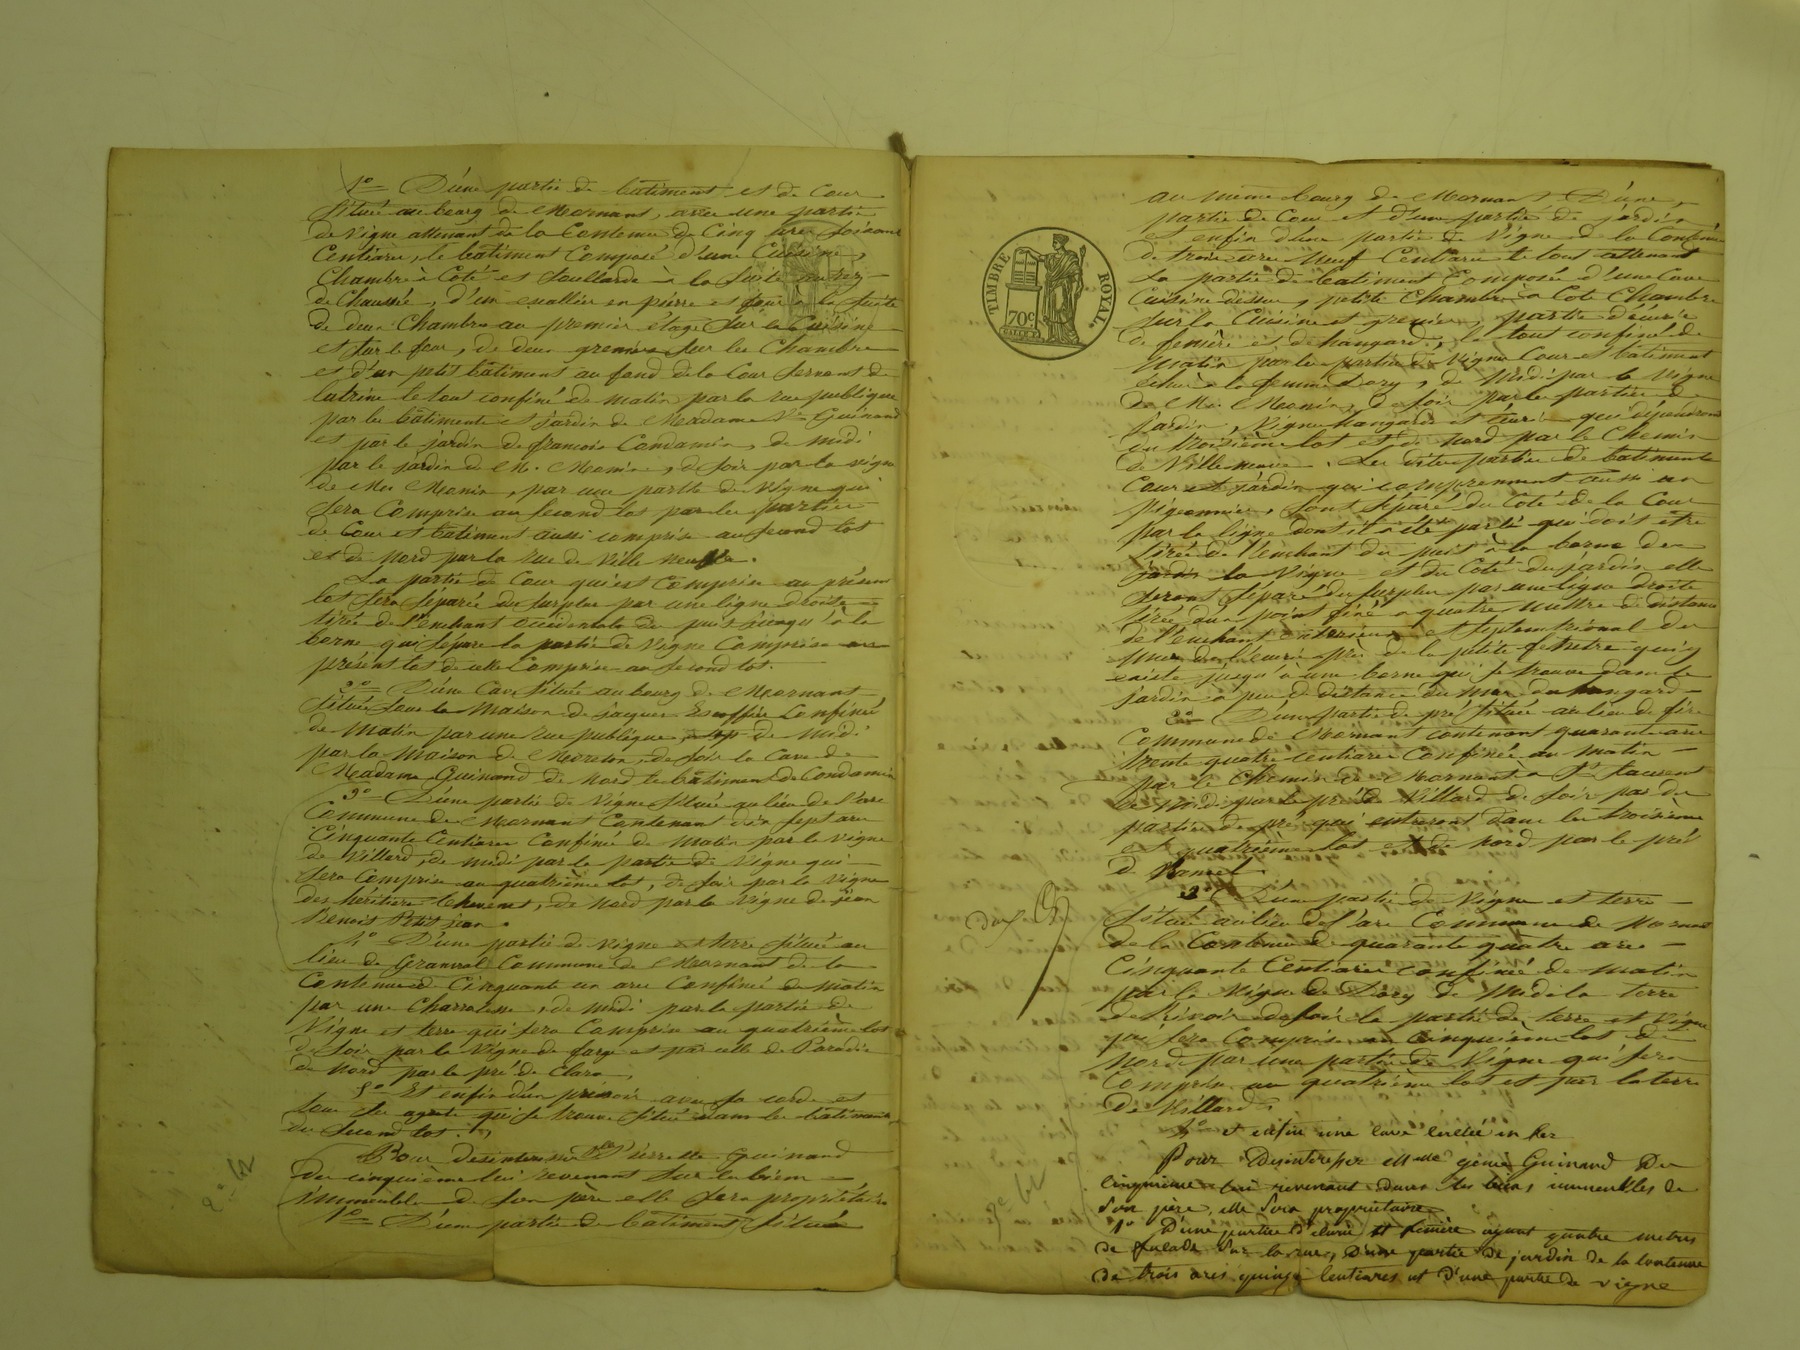 1o D'une partie de batiment et de Cour
située au bourg de Mornant, avec une partie
de vigne attenant de la Contenue de Cinq ares soixante
Centiares, le batiment Composé d'une Cuisine,
Chambre à Coté et Soullarde à la Suite au rez
de Chaussée, d'un escallier en pierre et four à la Suite
de deux Chambres au premier étage Sur la Cuisine
et Sur le four, de deux greniers Sur les Chambres
et d'un petit batiment au fond de la Cour servant de
latrine le tout confiné de matin par la rue publique
par les batiments et jardin de Madame Ve Guinand
et par le jardin de francois Condamin, de midi
par le jardin de M. Monin, de Soir par la vigne
de Mr Monin, par une partie de vigne qui
Sera Comprise au Second lot par les parties
de Cour et batiment aussi comprise au Second lot
et de Nord par la rue de Ville neuve.
La partie de Cour qui est Comprise au présent
lot Sera Séparée du Surplus par une ligne droite
tirée de l'enchant occidentale du puits jusqu'à la
borne qui Sépare la partie de Vigne Comprise au
présent lot de celle Comprise au Second lot.
2o D'une Cave Située au bourg de Mornant
Située Sous la Maison de Jacques Escoffier Confinée
de Matin par une rue publique, de Midi
par la Maison de Moreton, de Soir la Cave de
Madame Guinand de Nord le batiment de Condamin
3o D'une partie de Vigne Située au lieu de l'are
Commune de Mornant Contenant dix Sept ares
Cinquante Centiares Confinée de Matin par la vigne
de Villard, de midi par la partie de Vigne qui
Sera Comprise au quatrième lot, de Soir par la vigne
des héritiers Thevenet, de Nord par la Vigne de jean
Benoit Petit jean.
4o D'une partie de vigne et terre Située au
lieu de Granval Commune de Mornant de la
Contenue de Cinquante un ares Confinée de Matin
par une Charriere, de midi par la partie de
Vigne et terre qui Sera Comprise au quatrième lot
de Soir par la Vigne de farge et par celle de Paradis
de Nord par le pré de Clara,
5o Et enfin d'un préssoir avec Sa corde et
tous Ses agrets qui Se trouve Situé dans les batiments
du Second lot.
Pour desinteresser Pierrette Guinand
du cinquième lui revenant Sur les biens
immeubles de Son père elle Sera propriétaire
1o D'une partie de batiment Située
au même bourg de Mornant D'une
partie de Cour et d'une partie de jardin
et enfin d'une partie de Vigne de la Contenue
de trois ares Neuf Centiares le tout attenant
La partie de batiment Composée d'une Cave
Cuisine dessus, petite Chambre à Coté Chambre
Sur la Cuisine et grenier, partie d'écurie
de feniére et de hangard, le tout confiné de
Matin par la partie de Vigne Cour et batiment
échue à la femme Dory, de Midi par la vigne
de Mr. Monin, de Soir par la partie de
Jardin, Vigne hangard et écurie qui dépendront
du troisième lot et de Nord par le Chemin
de Ville neuve. Les dites parties de batiments
Cour et jardin qui comprennent aussi un
pigeonnier, Sont Séparé du Coté de la Cour
par la ligne dont il a été parlé qui doit être
tirée de l'enchant du puit à la borne de
la Vigne et du Coté du jardin elle
Seront Séparé du Surplus par une ligne droite
tirée d'un point fixé a quatre mettre de distance
de l'enchant intérieur et Septentrional du
mur de l'écurie près de la petite fenetre qui y
existe jusqu'à une borne qui Se trouve dans le
jardin à peu de distance du mur du hangard
2o D'une partie de pré Située au lieu de
Commune de Mornant contenant quarante ares
trente quatre centiares Confinée au Matin
par le Chemin de Mornant à St Laurent
de Midi par le pré de Villard de Soir par des
parties de pré qui entreront dans les troisième
et quatrième lot et de Nord par le pré
de
3o D'une partie de Vigne et terre
Située au lieu de l'are Commune de Mornant
de la Contenue de quarante quatre ares
Cinquante Centiares confinée de Matin
par la Vigne de Dory de Midi la terre
de de Soir la partie de terre et Vigne
qui Sera Comprise au Cinquième lot de
Nord par une partie de Vigne qui Sera
Comprise au quatrième lot et par la terre
De Villard.
4o et enfin une cuve cerclée en fer
Pour Désintéresser elle génie Guinand Du
cinquième lui revenant dans les biens immeubles de
Son père, elle Sera propriétaire
1o D'une partie d'écurie et feniére ayant quatre metres
de façade Sur la rue, D'une partie de jardin de la contenue
de trois ares quinze centiares et D'une partie de vigne
TIMBRE ROYAL.
70c.